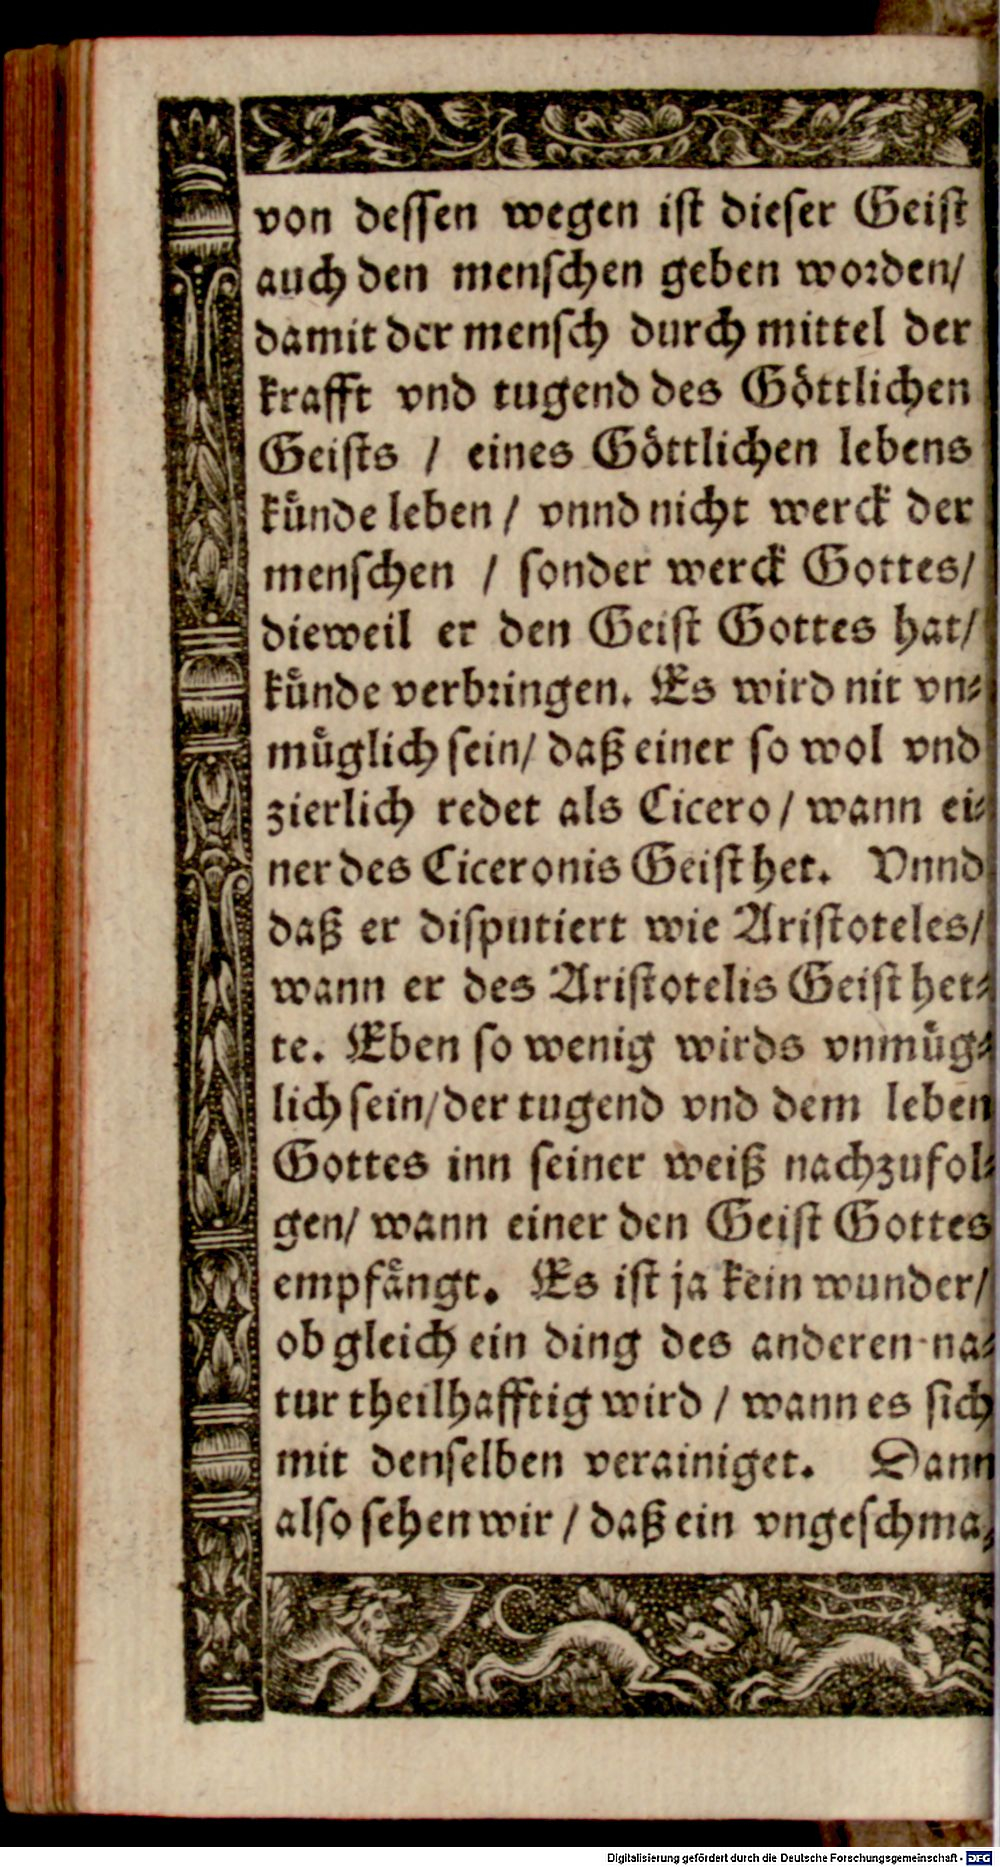 von dessen wegen ist dieser Geist
auch den menschen geben worden/
damit der mensch durch mittel der
krafft vnd tugend des Goͤttlichen
Geists / eines Goͤttlichen lebens
kuͤnde leben / vnnd nicht werck der
menschen / sonder werck Gottes/
dieweil er den Geist Gottes hat/
kuͤnde verbringen. Es wird nit vn⸗
muͤglich sein/ daß einer so wol vnd
zierlich redet als Cicero/ wann ei⸗
ner des Ciceronis Geist het. Vnnd
daß er disputiert wie Aristoteles/
wann er des Aristotelis Geist het⸗
te. Eben so wenig wirds vnmuͤg⸗
lich sein/ der tugend vnd dem leben
Gottes inn seiner weiß nachzufol⸗
gen/ wann einer den Geist Gottes
empfaͤngt. Es ist ja kein wunder/
ob gleich ein ding des anderen na⸗
tur theilhafftig wird / wann es sich
mit denselben verainiget. Dann
also sehen wir / daß ein vngeschma⸗
Digitalisierung gefördert durch die Deutsche Forschungsgemeinschaft - DFG